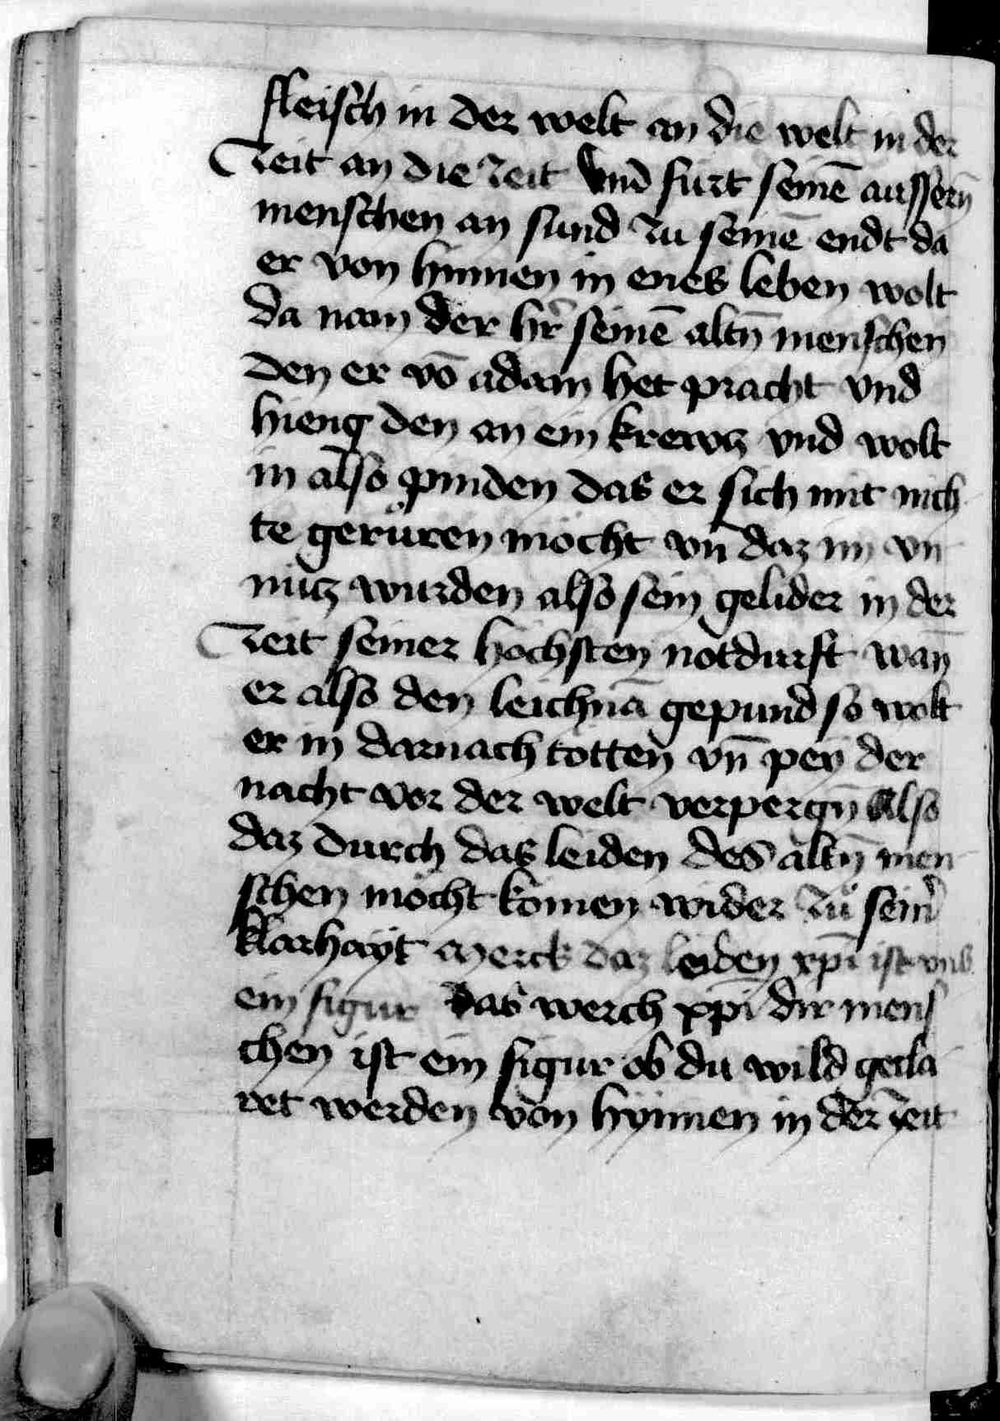 fleisch in der welt an die welt in der
Zeit an die Zeit Vnd furt seinē aussern̄
menschen an sund Zu seinē endt da
er von hinnen in enes leben wolt
da nam der hr̄ seinē altn̄ menschen
Den er vō adam het pracht vnd
hieng den an ein krewtz vnd wolt
in also pinden das er sich mit nich
te gerůren mocht vn̄ daz im vn
nutz wurden also sein gelider in der
Zeit seiner höchsten notdurft wan̄
er also den leichnā gepund so wolt
er in darnach totten vn̄ pey der
nacht vor der welt verpergn̄ Also
daz durch das leiden des altn̄ men
schen mocht komen wider Zů sein̄
klarhayt Merck daz leiden xp̄i ist vns
ein figur Das werch xp̄i dir mens
chen ist ein figur ob du wild gecla
ret werden von hynnen in der Zeit